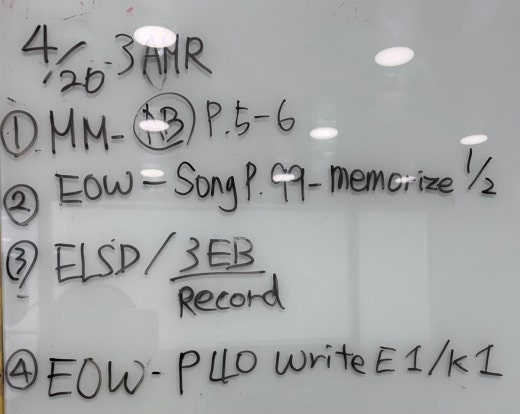 4/20 3AMR
① MM- AB P.5-6
② EOW - Song P. 99 - memorize 1/2
③ ELSD / 3EB
Record
④ EOW - P40 write E1/K1